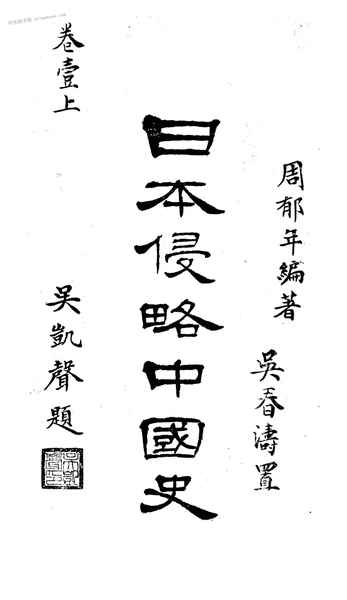 周郁年編著
吳春濤置
日本侵略中國史
卷壹上
吴凱聲題